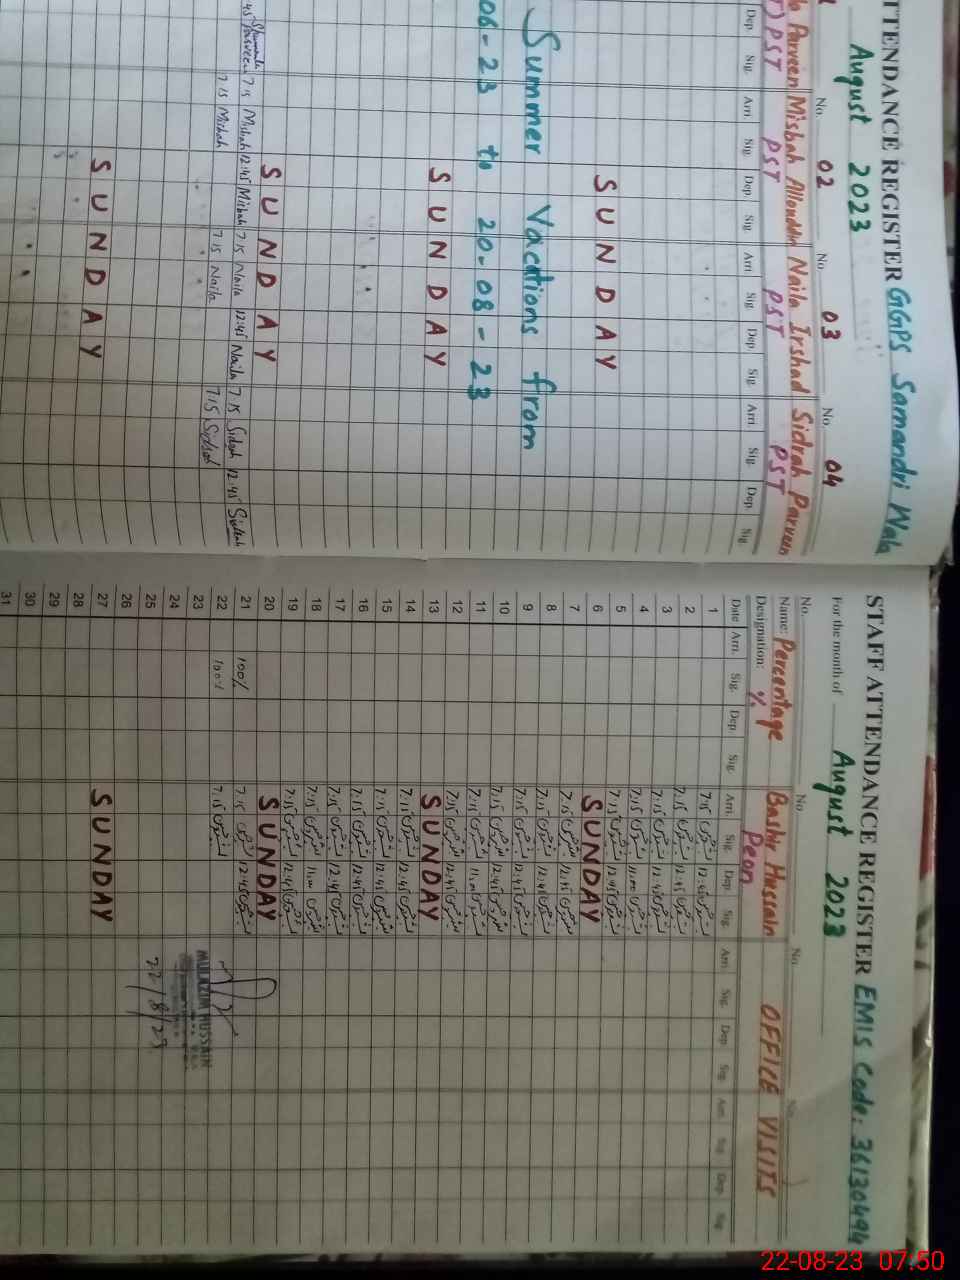 TTENDANCE REGISTER GGPS Samandri Wala
August 2023
No. 02 No. 03 No. 04
Parveen Misbah Allauddin Naila Irshad Sidrah Parveen
PST PST PST PST
Dep. Sig. Arri. Sig. Dep. Sig. Arri. Sig. Dep. Sig. Arri. Sig. Dep. Sig.
SUNDAY
Summer Vacations from
06-23 to 20-08-23
SUNDAY
SUNDAY
Parveen 7:15 Misbah 12:45 Misbah 7:15 Naila 12:45 Naila 7:15 Sidrah 12:45 Sidrah
7:15 Misbah 7:15 Naila 7:15 Sidrah
SUNDAY
STAFF ATTENDANCE REGISTER EMIS Code: 36130494
For the month of August 2023
No. No. No. No.
Name: Percentage Bashir Hussain OFFICE VISITS
Designation: % Peon
Date Arri. Sig. Dep. Sig. Arri. Sig. Dep. Sig. Arri. Sig. Dep. Sig. Arri. Sig. Dep. Sig.
1 7:15 12:45
2 7:15 12:45
3 7:15 12:45
4 7:15 11:00
5 7:15 12:45
6 SUNDAY
7 7:15 12:45
8 7:15 12:45
9 7:15 12:45
10 7:15 12:45
11 7:15 11:00
12 7:15 12:45
13 SUNDAY
14 7:15 12:45
15 7:15 12:45
16 7:15 12:45
17 7:15 12:45
18 7:15 11:00
19 7:15 12:45
20 SUNDAY
21 100% 7:15 12:45
22 100% 7:15
23 MULAZIM HUSSAIN
24
25 22/8/23
26
27 SUNDAY
28
29
30
31
22-08-23 07:50